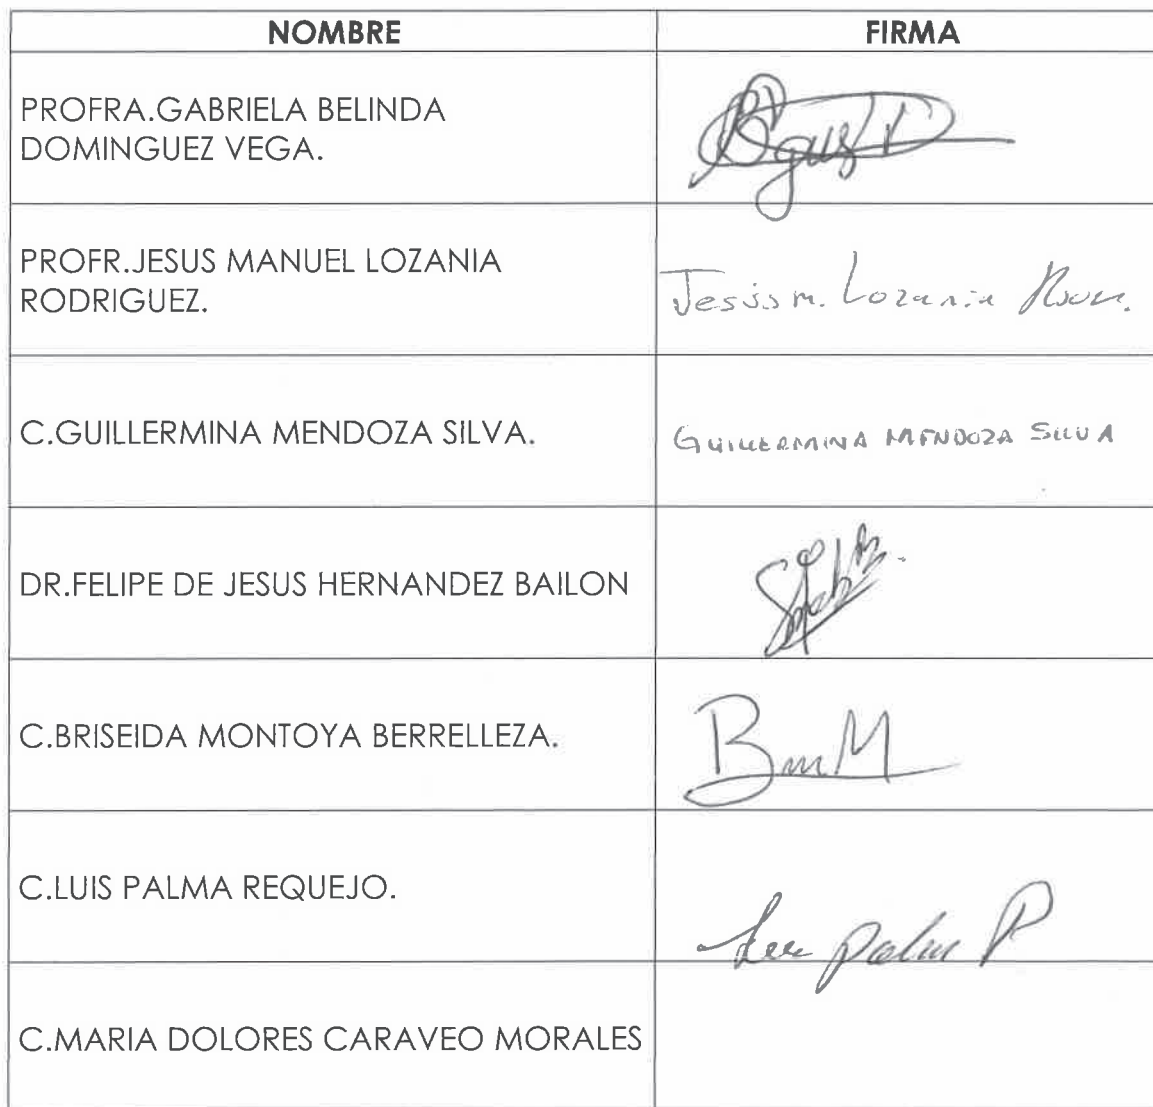 NOMBRE FIRMA
PROFRA.GABRIELA BELINDA
DOMINGUEZ VEGA.
PROFR.JESUS MANUEL LOZANIA
RODRIGUEZ.
Jesús m. Lozania
C.GUILLERMINA MENDOZA SILVA.
GUILLERMINA MENDOZA SILVA
DR.FELIPE DE JESUS HERNANDEZ BAILON
C.BRISEIDA MONTOYA BERRELLEZA.
C.LUIS PALMA REQUEJO.
C.MARIA DOLORES CARAVEO MORALES